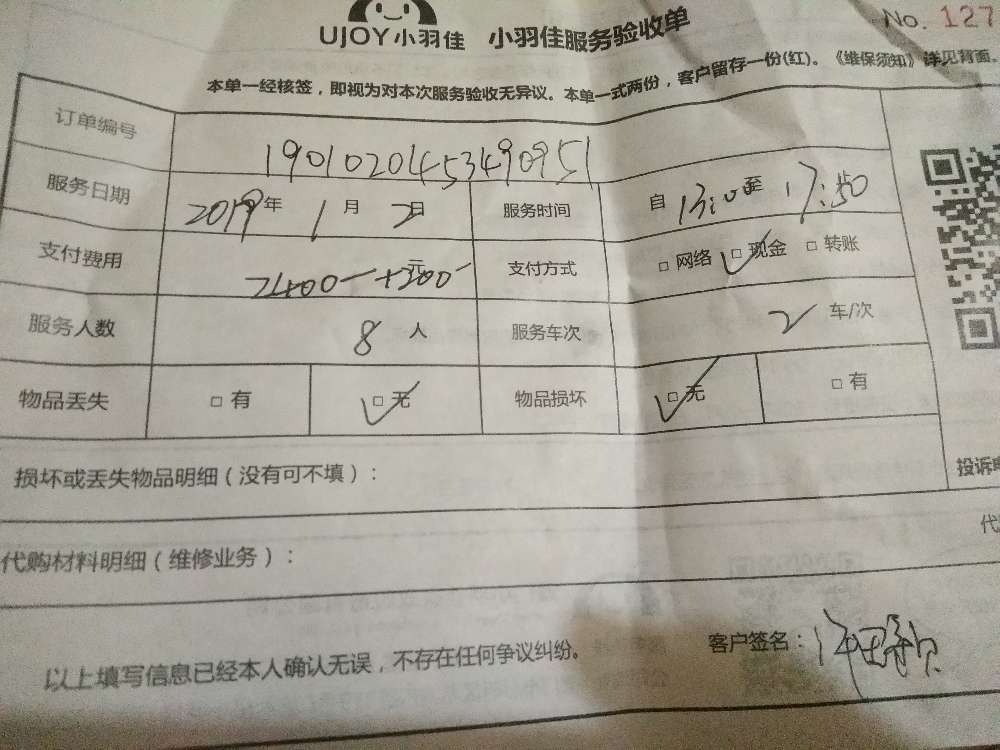 UJOY小羽佳 小羽佳服务验收单 No. 127
本单一经核签，即视为对本次服务验收无异议。本单一式两份，客户留存一份(红)。《维保须知》详见背面。
订单编号 1901020453490951
服务日期 2019年 1月 2日 服务时间 自 13:00至 17:50
支付费用 2400-元+300- 支付方式 □网络 □✓现金 □转账
服务人数 8 人 服务车次 2 车/次
物品丢失 □有 □✓无 物品损坏 □✓无 □有
损坏或丢失物品明细（没有可不填）：
投诉
代购材料明细（维修业务）：
代
以上填写信息已经本人确认无误，不存在任何争议纠纷。 客户签名：